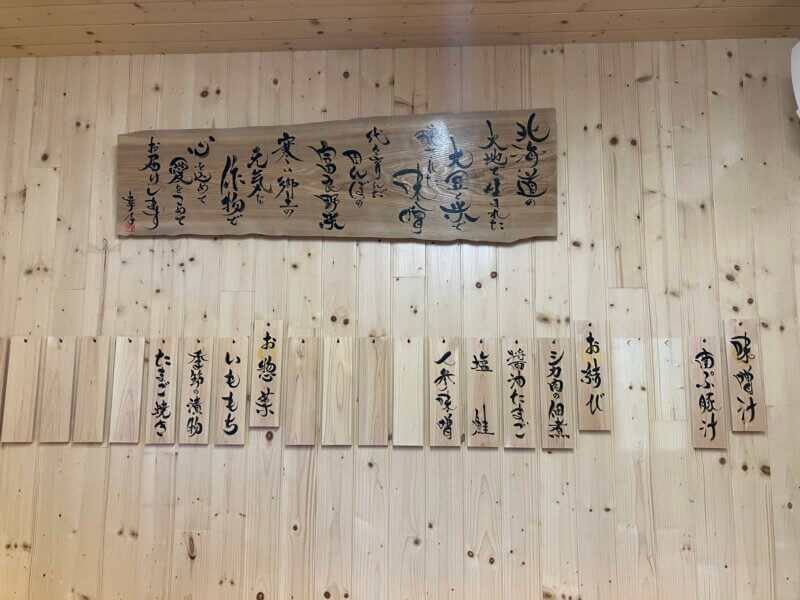 北海道の
大地で生まれた
大豆と米で
醸された
味噌
代々育んだ
田んぼの
富良野米
寒い郷土の
元気な
作物で
心を込めて
愛をつめて
お届けします
味噌汁
南ぷ豚汁
お結び
シカ肉の佃煮
醤油たまご
塩鮭
人参味噌
お惣菜
いももち
季節の漬物
たまご焼き